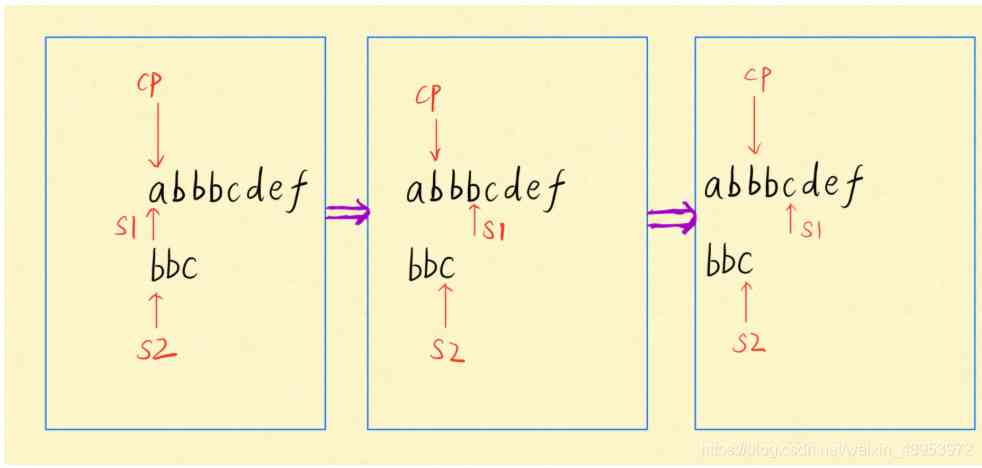 cp
abbbcdef
s1
bbc
s2
cp
abbbcdef
s1
bbc
s2
cp
abbbcdef
s1
bbc
s2
https://blog.csdn.net/weixin_48953972